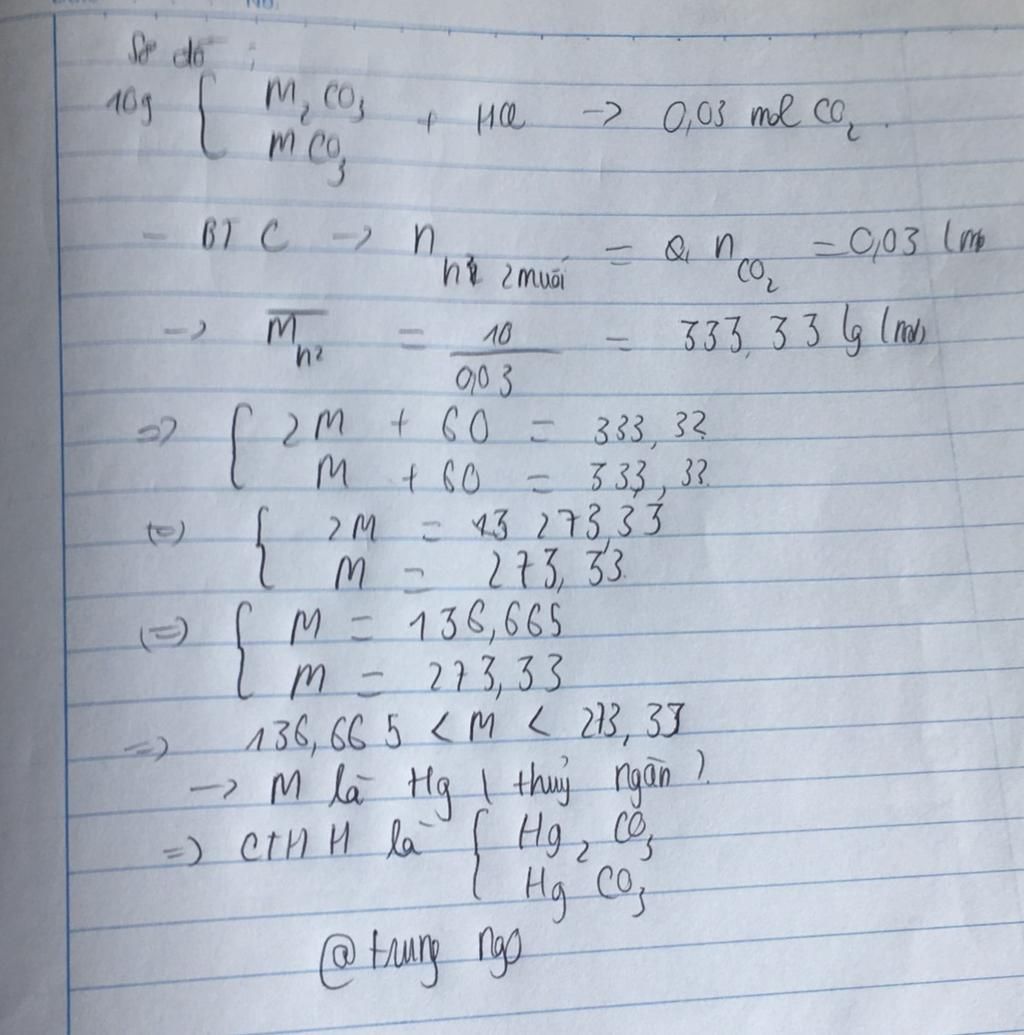 No.
Sơ đồ :
10g { M₂CO₃ + HCl → 0,03 mol CO₂.
MCO₃
- BT C → n h² 2 muối = n CO₂ = 0,03 (mol)
→ M̅ h² = 10 / 0,03 = 333,33 (g/mol)
=> { 2M + 60 = 333,33
M + 60 = 333,33
(=) { 2M = 273,33
M = 273,33
(=) { M = 136,665
M = 273,33
=> 136,665 < M < 273,33
→ M là Hg ( thuỷ ngân ).
=> CTHH là { Hg₂CO₃
HgCO₃
@trung ngo